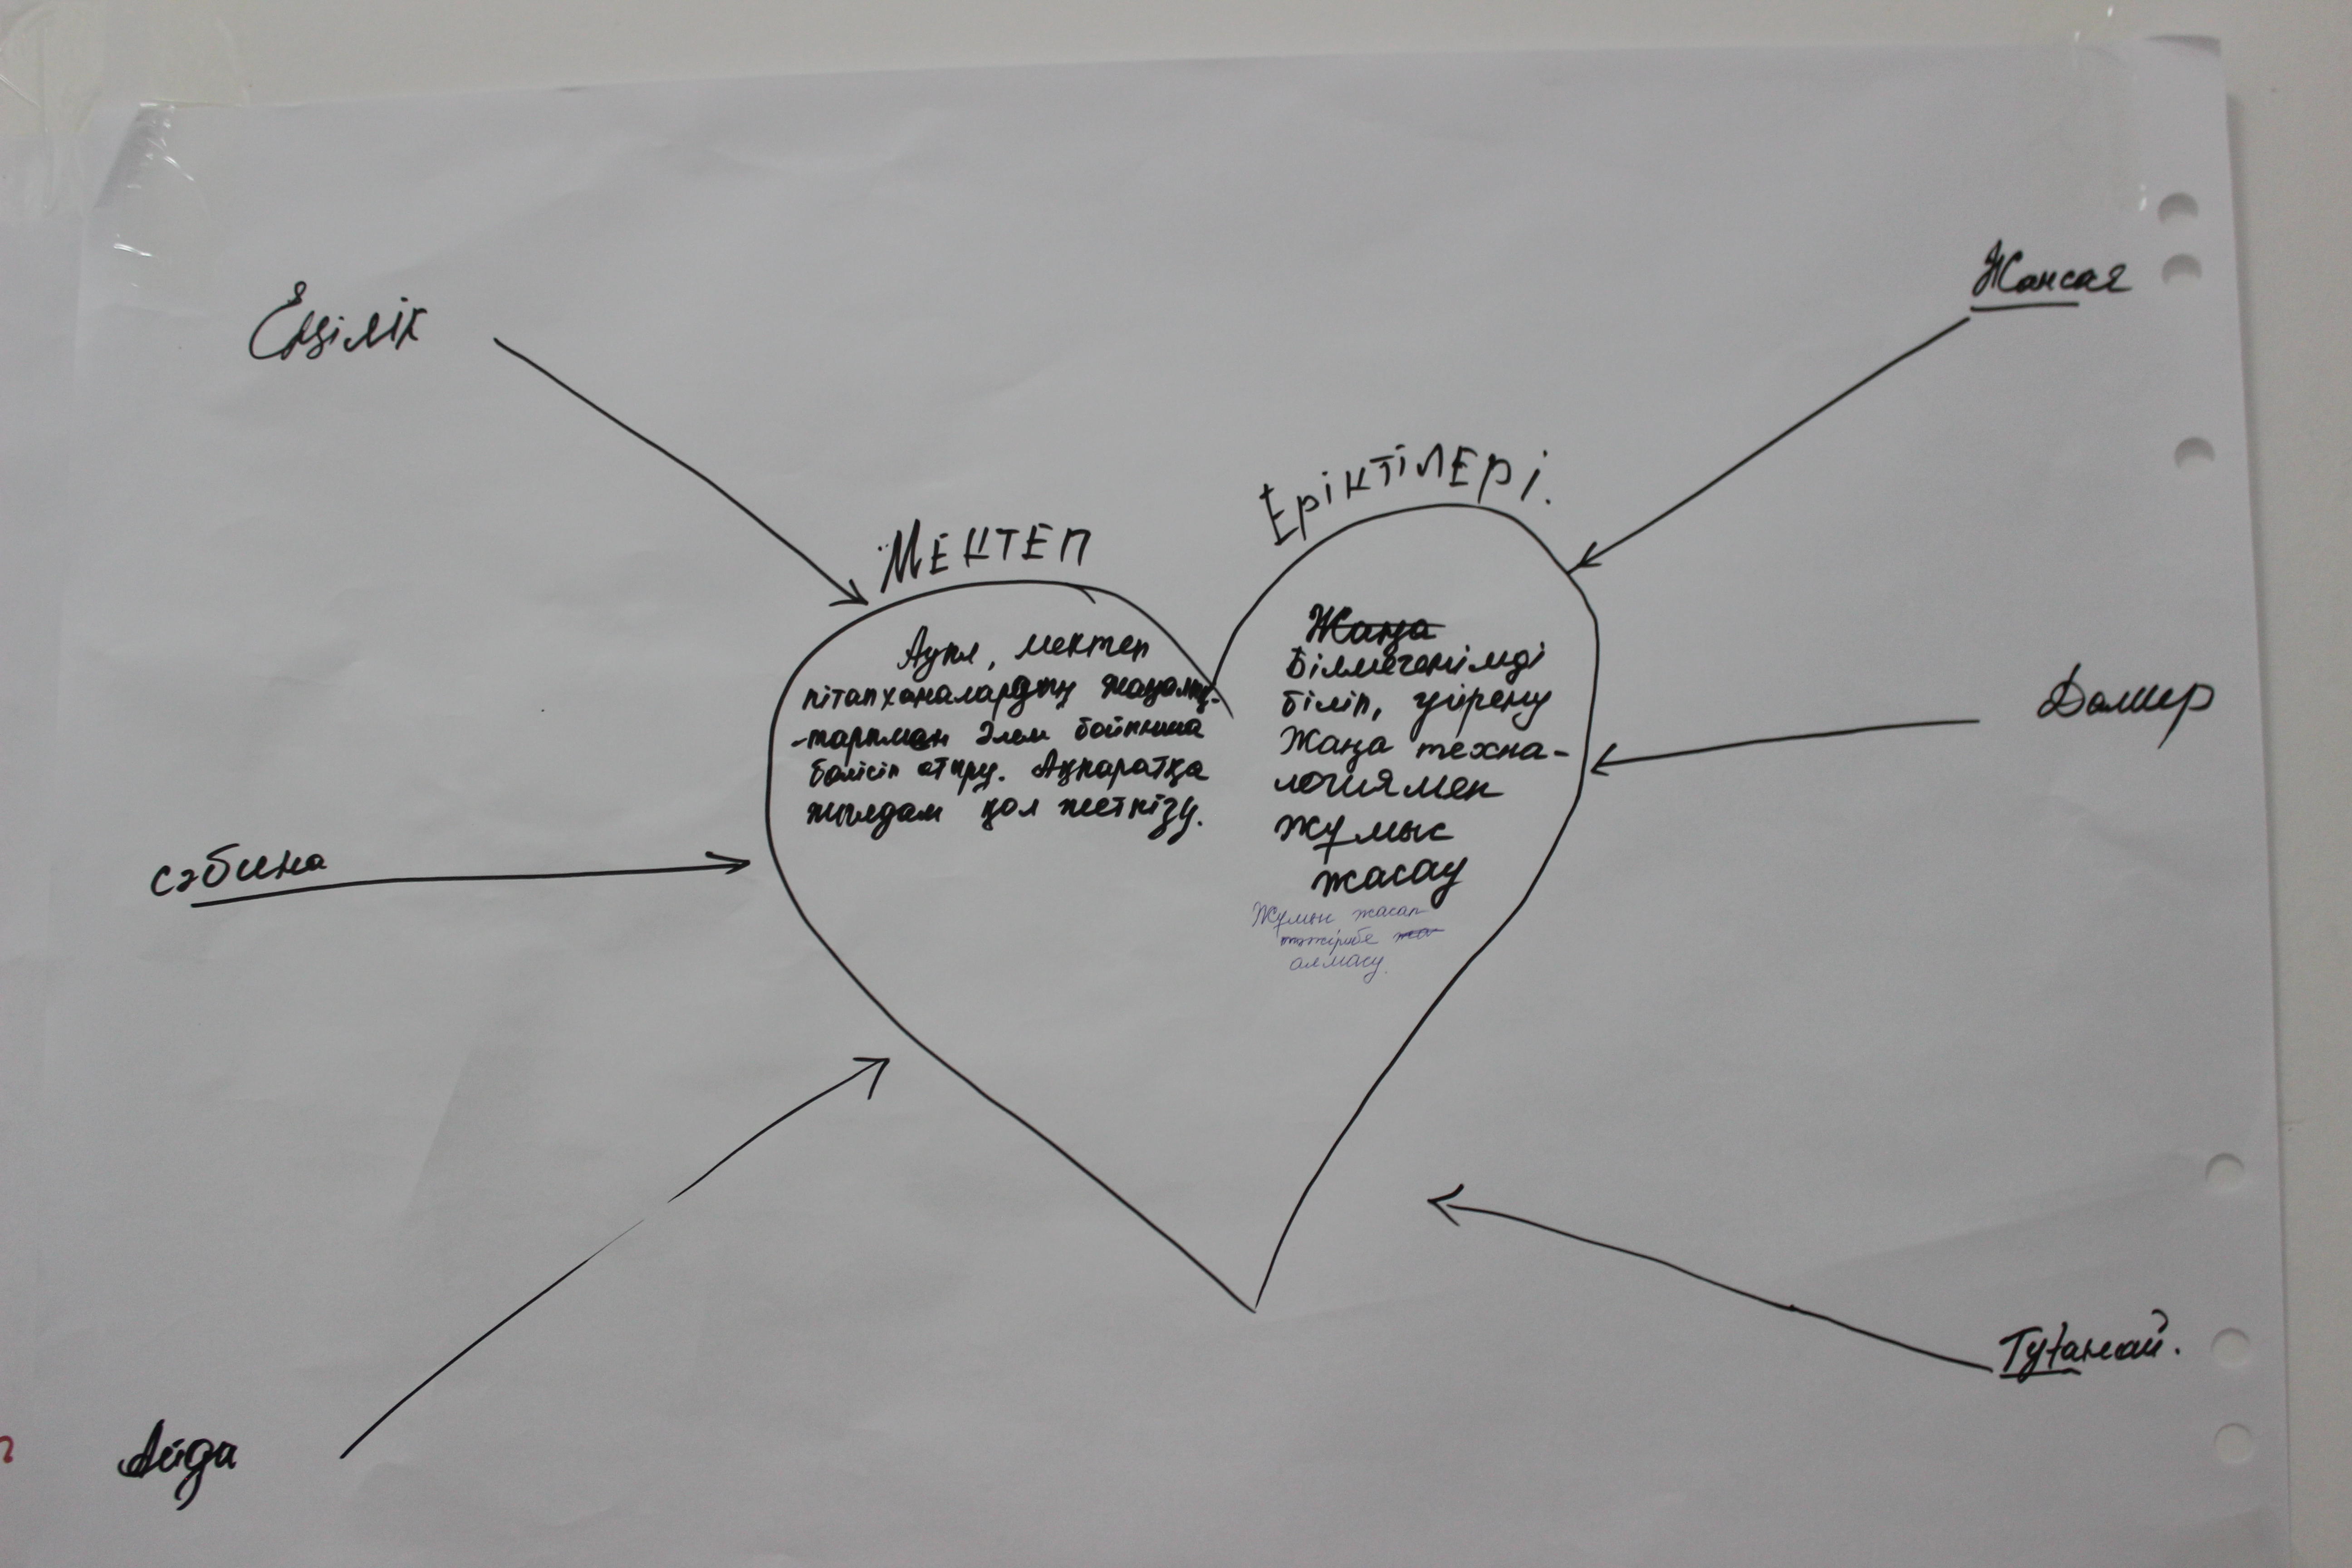 Еңілік
Жансая
МЕКТЕП
Еріктілері.
Ауыл, мектеп
кітапханалардың жаңалық-
-тарымен әлем бойынша
бөлісіп отыру. Ақпаратқа
жылдам қол жеткізу.
Жаңа
Білмегенімді
біліп, үйрену
Жаңа техна-
логиямен
жұмыс
жасау
Жұмыс жасап
тәжірибе жа
алмасу.
Дамир
сәбина
Айда
Тұтанай.